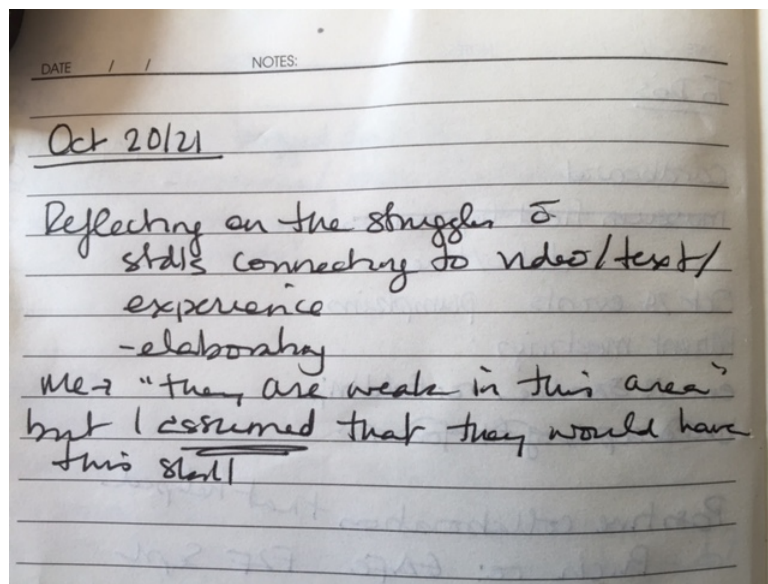 DATE / / NOTES:
Oct 20/21
Reflecting on the struggles c̄
stdts connecting to video/text/
experience
-elaborating
Me→ "they are weak in this area"
but I assumed that they would have
this skill